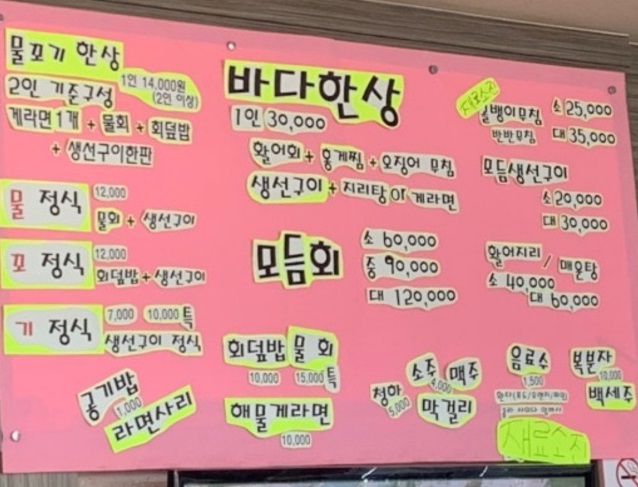 물꼬기 한상
1인 14,000원
(2인 이상)
2인 기준구성
게라면1개 + 물회 + 회덮밥
+ 생선구이한판
물 정식
12,000
물회 + 생선구이
꼬 정식
12,000
회덮밥 + 생선구이
기 정식
7,000 10,000 특
생선구이 정식
공기밥
1,000
라면사리
바다한상
1인 30,000
활어회 + 홍게찜 + 오징어 무침
생선구이 + 지리탕 or 게라면
모듬회
소 60,000
중 90,000
대 120,000
회덮밥 물 회
10,000 15,000 특
해물게라면
10,000
청하
5,000
소주 맥주
4,000
막걸리
재료소진
골뱅이무침
반반무침
소 25,000
대 35,000
모듬생선구이
소 20,000
대 30,000
활어지리 / 매운탕
소 40,000
대 60,000
음료수
1,500
복분자
10,000
백세주
재료소진